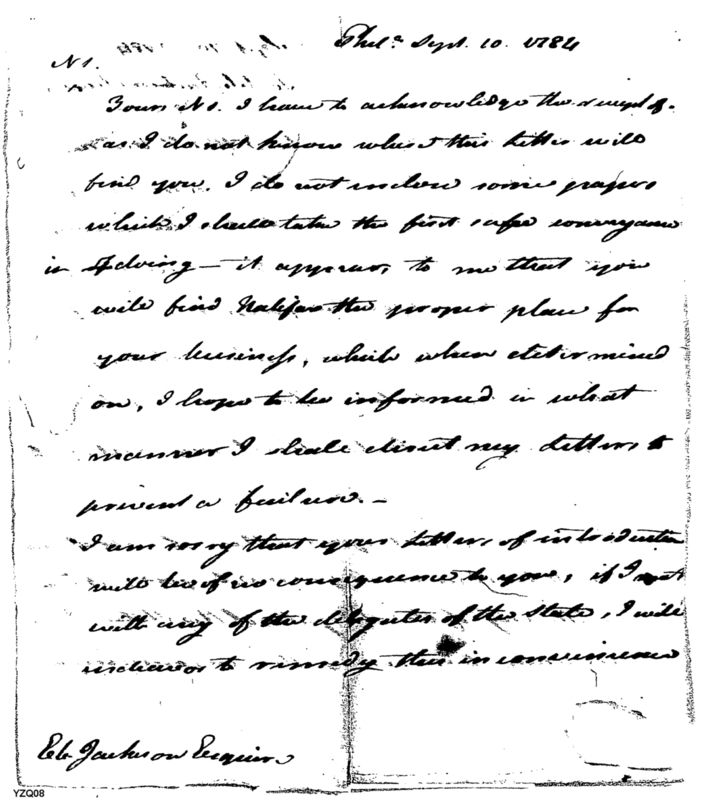 Phila. Sept. 10. 1784
Yours No. 1 have to acknowledge the receipt of.
as I do not know where this Letter will
find you, I do not inclose some papers
which I shall take the first safe conveyance
in doing — it appears to me that you
will find Halifax the proper place for
your business, which when determined
on, I hope to be informed in what
manner I shall direct my Letters to
prevent a failure. —
I am sorry that your Letters of introduction
will be of no consequence to you, if I meet
with any of the delegates of the State, I will
endeavor to remedy this inconvenience
Eb. Jackson Esquire
YZQ08